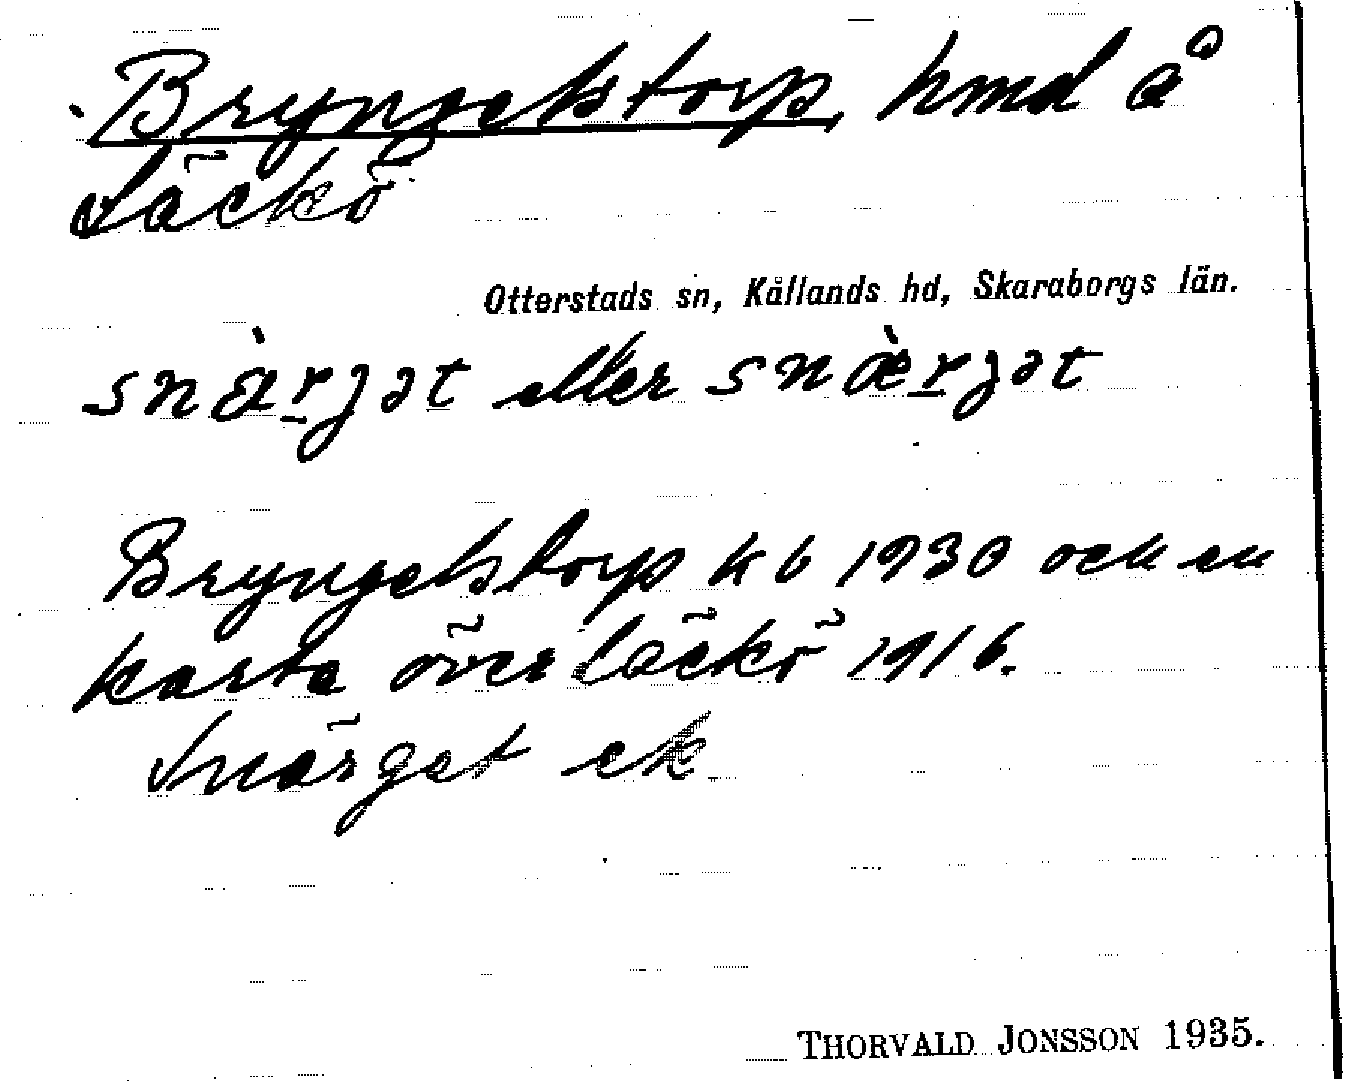 Bryngelstorp, hmd å
Läckö
Otterstads sn, Kållands hd, Skaraborgs län.
snàrjət eller snæ̀rjət
Bryngelstorp kb 1930 och en
karta över Läckö 1916.
Snärget ek
THORVALD JONSSON 1935.